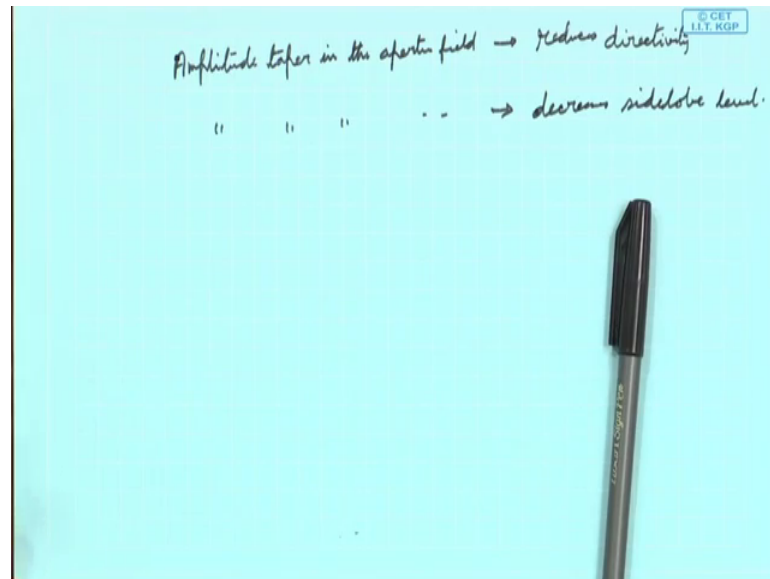 © CET
I.I.T. KGP
Amplitude taper in the aperture field → reduces directivity
" " " - - → decreases sidelobe level.